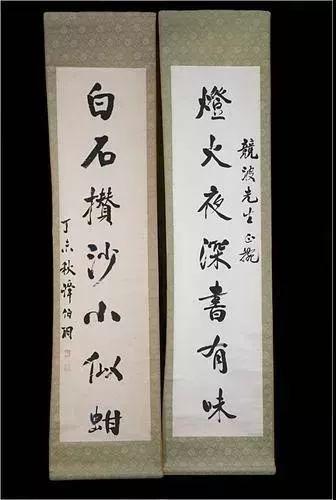 競波先生正腕
燈火夜深書有味
白石攢沙小似蚶
丁未秋譚伯羽